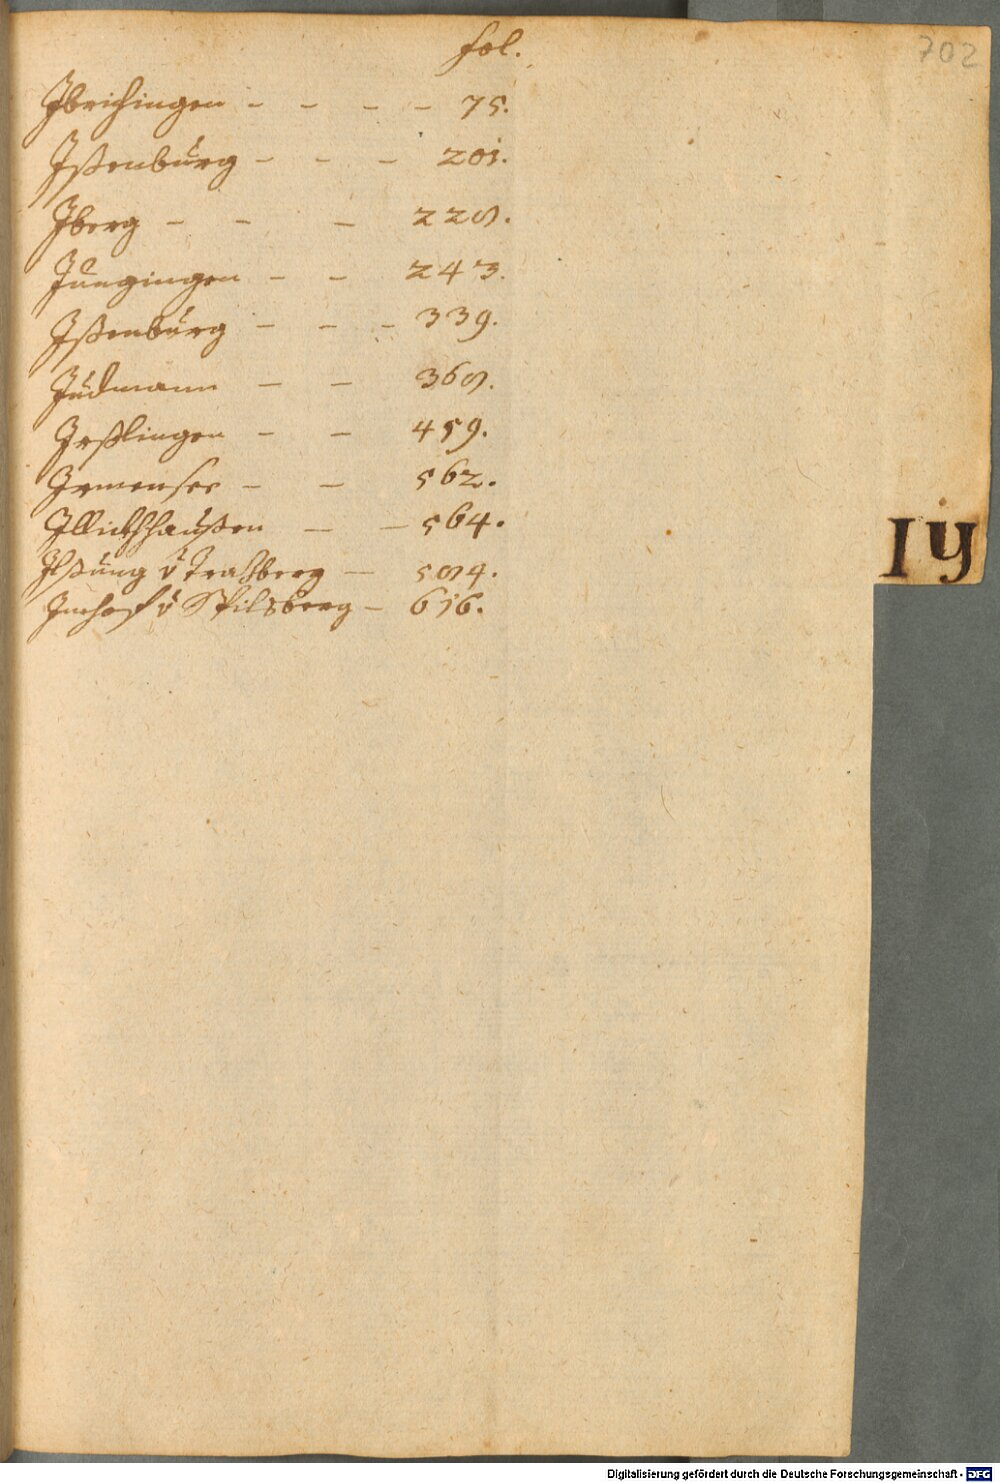 702
fol.
Ibrichingen - - - - 75.
Ißenburg - - - 201.
Iberg - - - 228.
Jungingen - - 243.
Ißenburg - - - 339.
Judmann - - 368.
Irßlingen - - 459.
Irmensee - - 562.
Illickhhaußen - - 564.
Ilßung v Trazberg - 584.
Imhoff v Spilsberg - 616.
IY
Digitalisierung gefördert durch die Deutsche Forschungsgemeinschaft - DFG